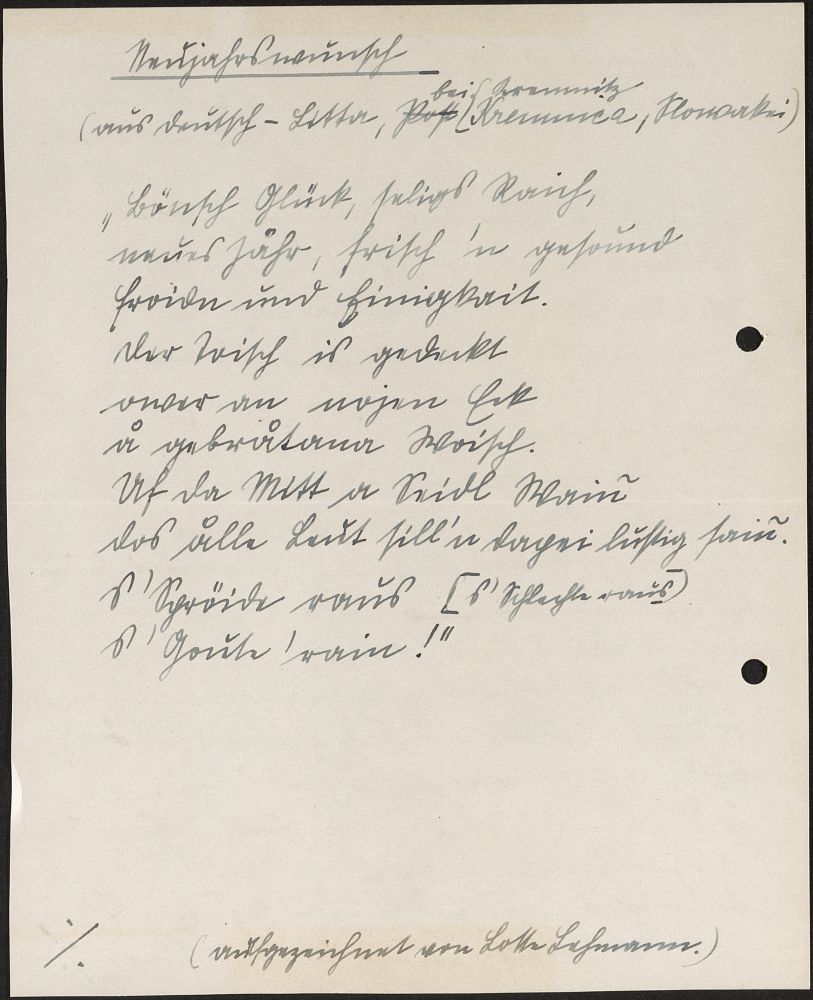 Neujahrswunsch
(aus Deutsch-Litta, Post bei Kremnitz (Kremnica, Slowakei)
„Bönsch Glück, seligs Raich,
neues Jåhr, frisch 'n gesound
Froidn und Einigkait.
Der Toisch is gedeckt
ower an nojen Eck
å gebråtana Woisch.
Uf da Mitt a Seidl Wain̄
dos ålle Leut sill'n dapei lustig sain̄.
S' Spröide raus [s' Schlechte raus)
S' Goute 'rain!"
(aufgezeichnet von Lotte Lehmann.)